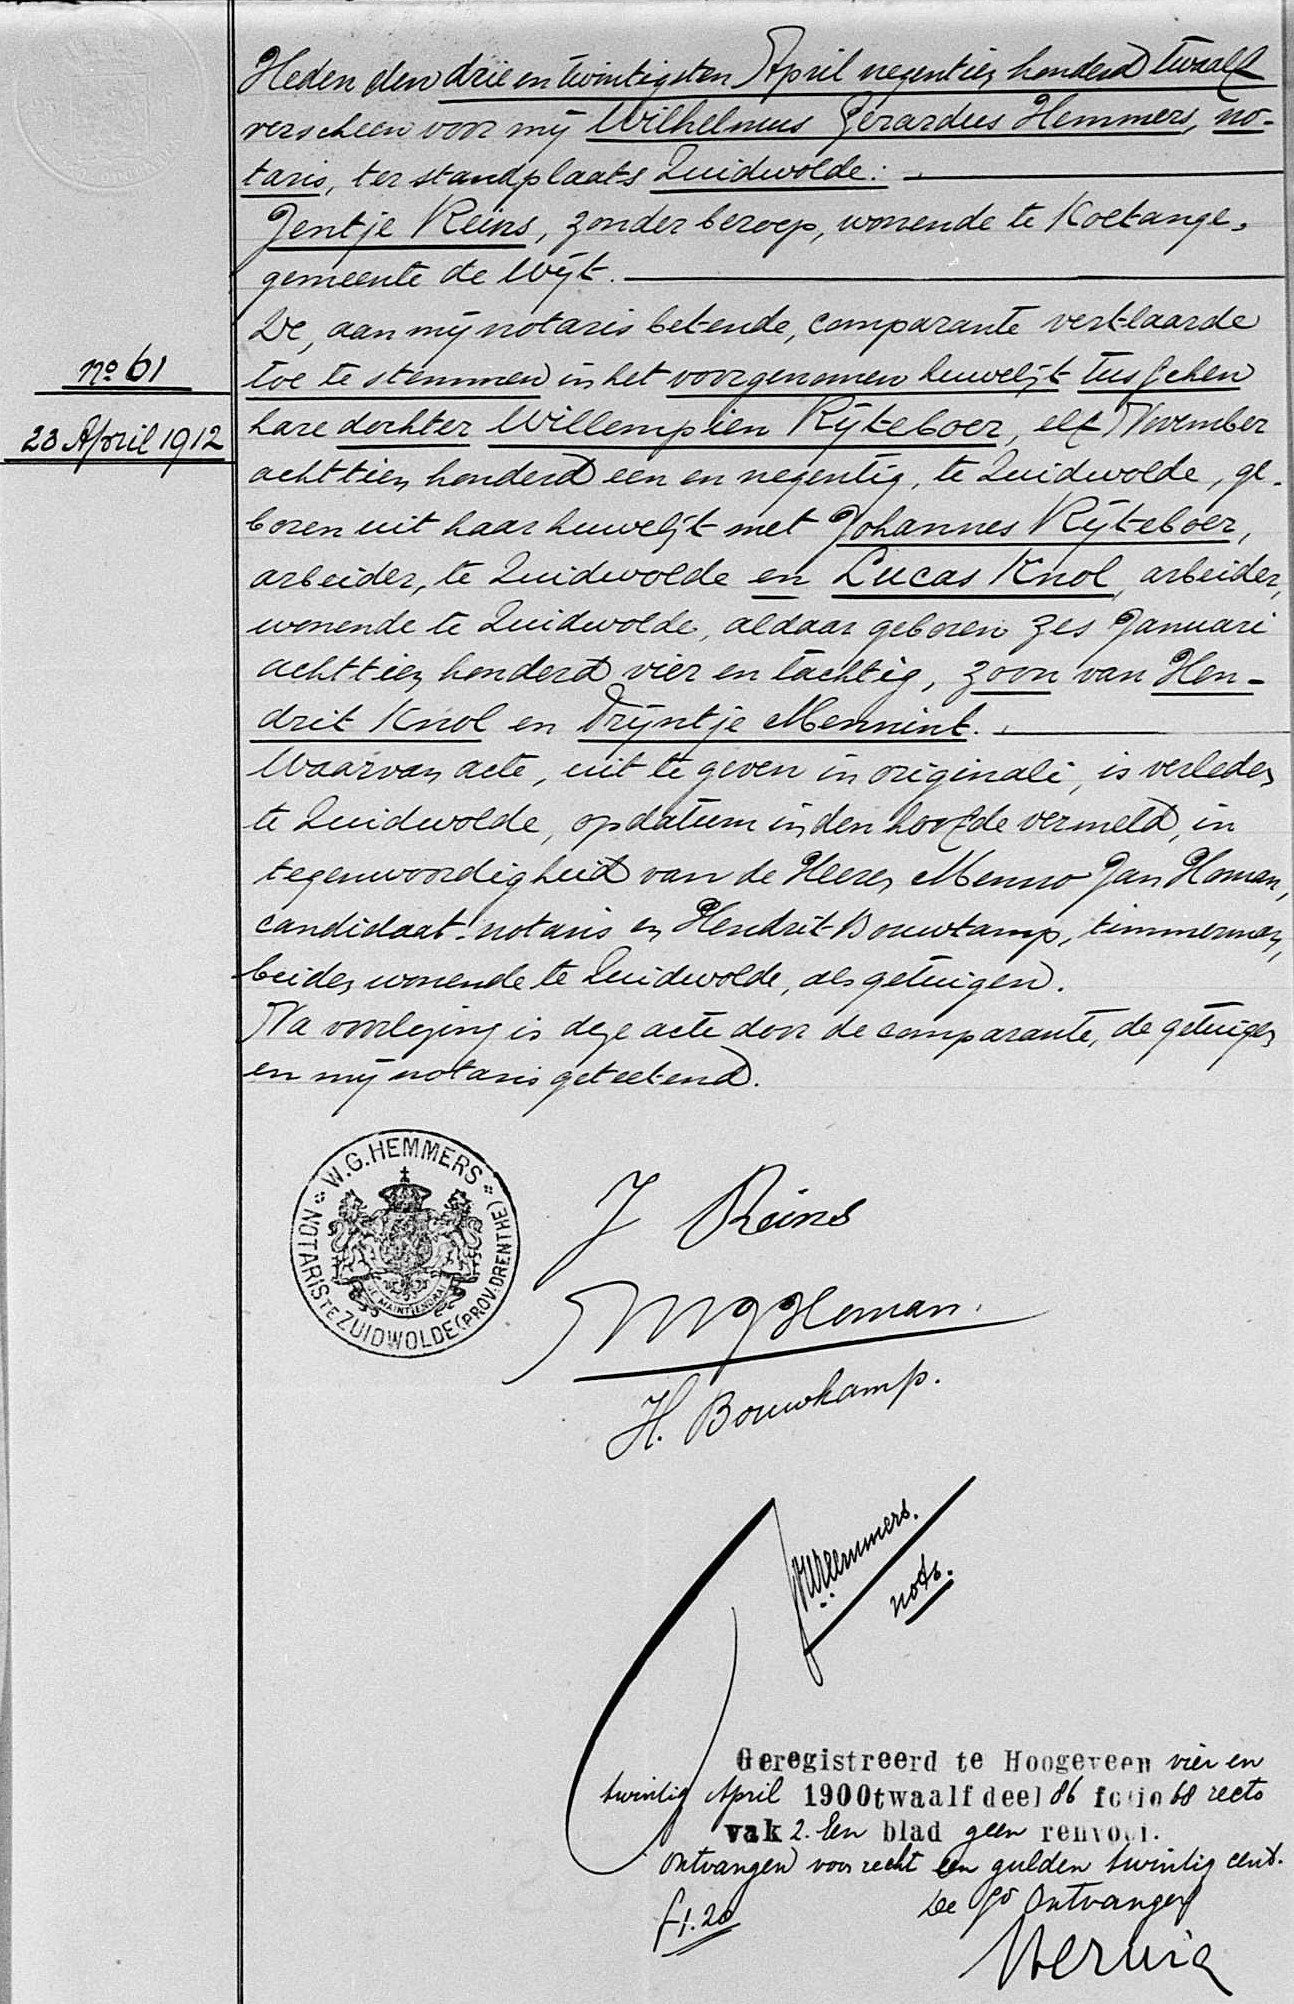 Heden den drie en twintigsten April negentien honderd twaalf
verscheen voor mij Wilhelmus Gerardus Hemmers, no-
taris, ter standplaats Zuidwolde:
Jentje Reins, zonder beroep, wonende te Koekange,
gemeente de Wijk.
no 61
23 April 1912
De, aan mij notaris bekende, comparante verklaarde
toe te stemmen in het voorgenomen huwelijk tusschen
hare dochter Willempien Rijkeboer, elf November
achttien honderd een en negentig, te Zuidwolde, ge-
boren uit haar huwelijk met Johannes Rijkeboer,
arbeider, te Zuidwolde en Lucas Knol, arbeider,
wonende te Zuidwolde, aldaar geboren zes Januari
achttien honderd vier en tachtig, zoon van Hen-
drik Knol en Trijntje Mennink.
Waarvan acte, uit te geven in originali, is verleden
te Zuidwolde, op datum in den hoofde vermeld, in
tegenwoordigheid van de Heeren Menno Jan Homan,
candidaat-notaris en Hendrik Bouwkamp, timmerman,
beiden wonende te Zuidwolde, als getuigen.
Na voorlezing is deze acte door de comparante, de getuigen
en mij notaris geteekend.
W.G. HEMMERS
NOTARIS TE ZUIDWOLDE (PROV. DRENTHE)
JE MAINTIENDRAI
J Reins
M J Homan.
H. Bouwkamp.
WGHemmers.
nots.
Geregistreerd te Hoogeveen vier en
twintig April 1900twaalf deel 86 folio 68 recto
vak 2. Een blad geen renvooi.
Ontvangen voor recht een gulden twintig cent.
f 1.20
De Ontvanger